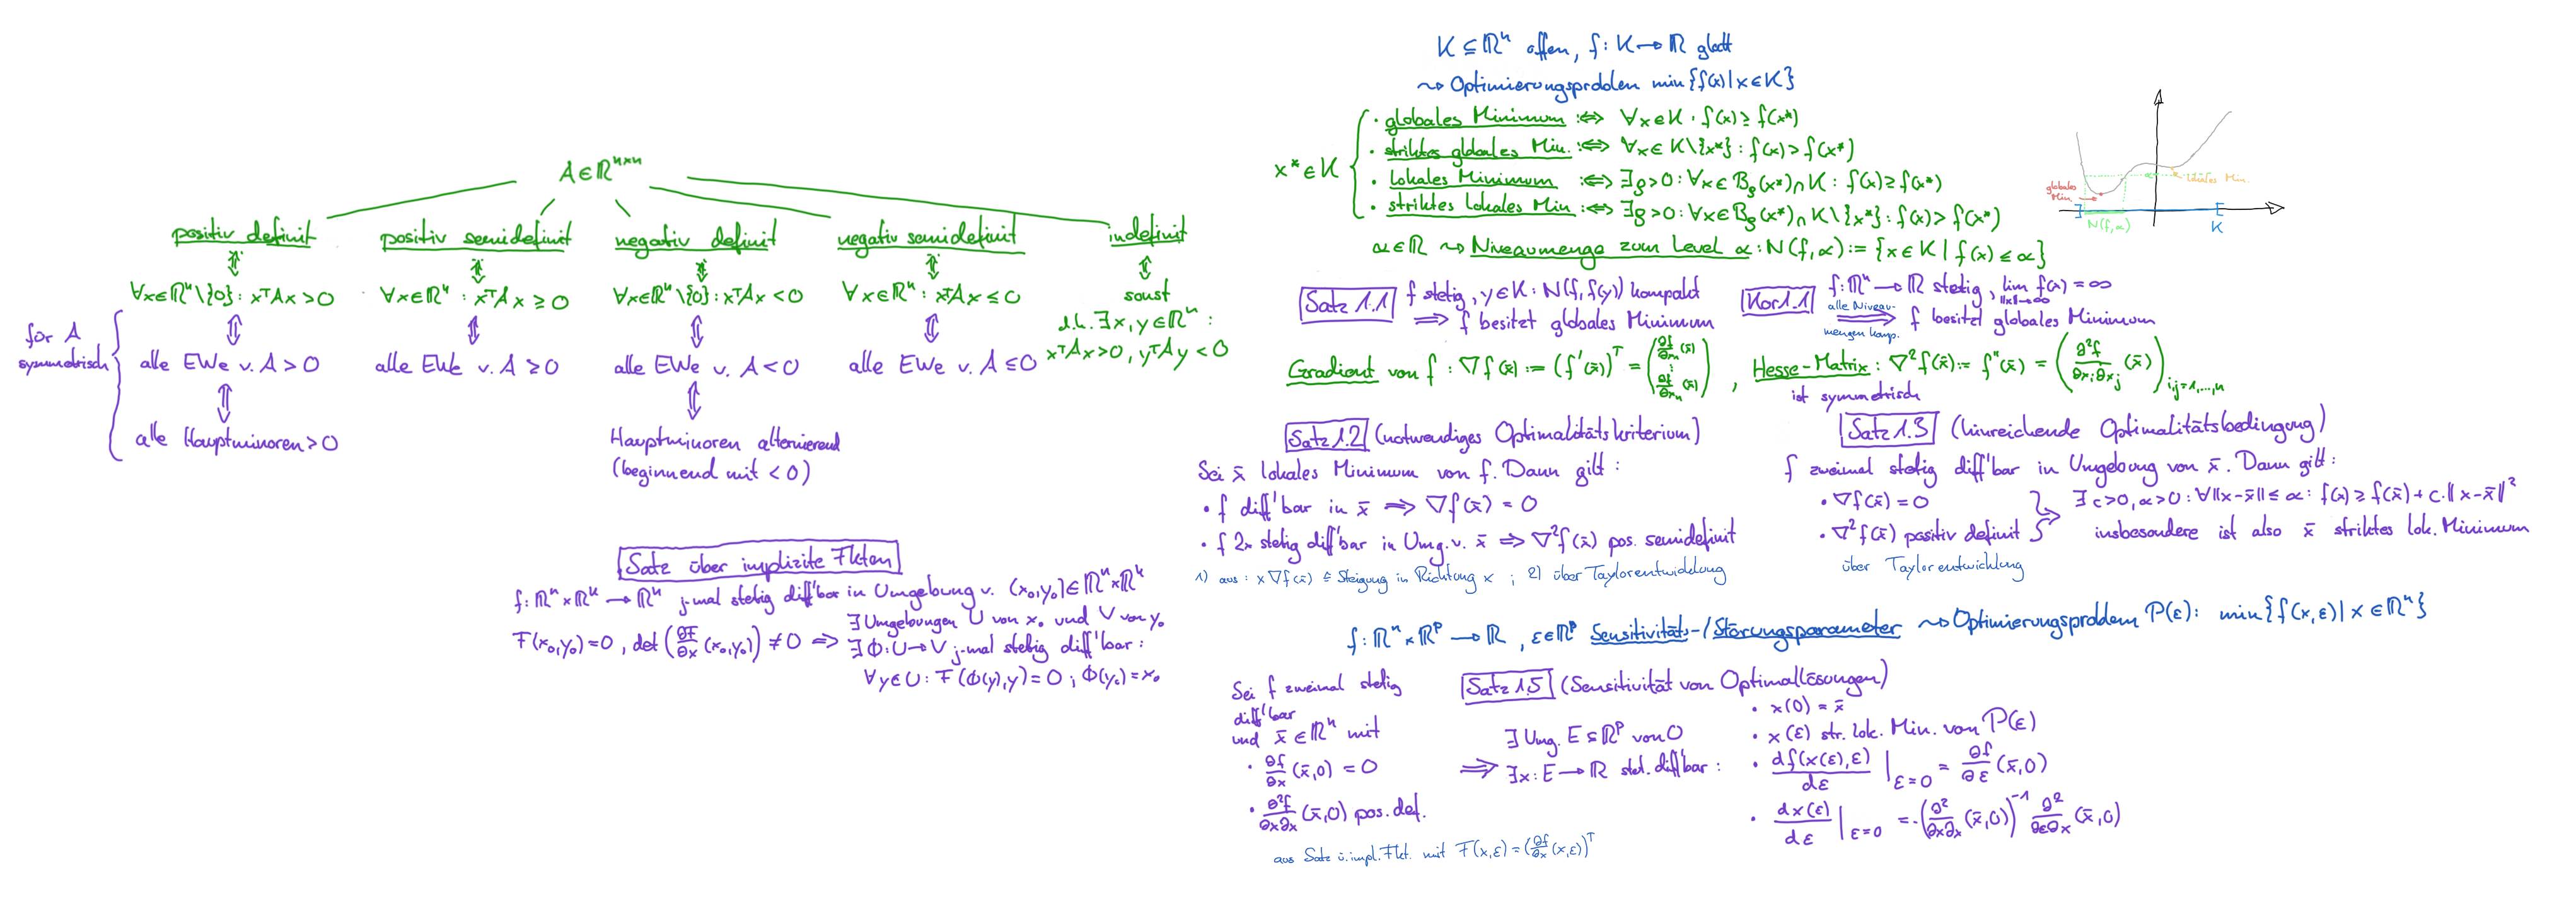 A ∈ ℝⁿˣⁿ
positiv definit
positiv semidefinit
negativ definit
negativ semidefinit
indefinit
∀x∈ℝⁿ\{0}: xᵀAx > 0
∀x∈ℝⁿ : xᵀAx ≥ 0
∀x∈ℝⁿ\{0}: xᵀAx < 0
∀x∈ℝⁿ : xᵀAx ≤ 0
sonst
d.h. ∃x,y∈ℝⁿ :
xᵀAx>0, yᵀAy<0
for A
symmetrisch
alle EWe v. A > 0
alle EWe v. A ≥ 0
alle EWe v. A < 0
alle EWe v. A ≤ 0
alle Hauptminoren > 0
Hauptminoren alternierend
(beginnend mit < 0)
Satz über implizite Fkten
f: ℝⁿ×ℝᵏ → ℝⁿ j-mal stetig diff'bar in Umgebung v. (x₀,y₀)∈ℝⁿ×ℝᵏ
F(x₀,y₀)=0, det(∂F/∂x (x₀,y₀)) ≠ 0 ⇒ ∃ Umgebungen U von x₀ und V von y₀
∃ Φ: U→V j-mal stetig diff'bar :
∀y∈U: F(Φ(y),y)=0 ; Φ(y₀)=x₀
K ⊆ ℝⁿ offen, f: K → ℝ glatt
⇝ Optimierungsproblem min{f(x) | x∈K}
x* ∈ K
· globales Minimum :⇔ ∀x∈K : f(x) ≥ f(x*)
· striktes globales Min. :⇔ ∀x∈K\{x*} : f(x) > f(x*)
· lokales Minimum :⇔ ∃ρ>0: ∀x∈B_ρ(x*)∩K : f(x) ≥ f(x*)
· striktes lokales Min :⇔ ∃ρ>0: ∀x∈B_ρ(x*)∩K\{x*} : f(x) > f(x*)
α∈ℝ ⇝ Niveaumenge zum Level α : N(f,α) := {x∈K | f(x) ≤ α}
globales
Min.
lokales Min.
α
N(f,α)
K
Satz 1.1 f stetig, y∈K : N(f,f(y)) kompakt
⟹ f besitzt globales Minimum
Kor 1.1 f: ℝⁿ → ℝ stetig, lim_{‖x‖→∞} f(x) = ∞
alle Niveau-
mengen komp.
⟹ f besitzt globales Minimum
Gradient von f : ∇f(x̄) := (f'(x̄))ᵀ = (∂f/∂x₁ (x̄) ⋮ ∂f/∂xₙ (x̄)) ,
Hesse-Matrix : ∇²f(x̄) := f''(x̄) = (∂²f/∂xᵢ∂xⱼ (x̄))_{i,j=1,...,n}
ist symmetrisch
Satz 1.2 (notwendiges Optimalitätskriterium)
Sei x̄ lokales Minimum von f. Dann gilt :
· f diff'bar in x̄ ⟹ ∇f(x̄) = 0
· f 2x stetig diff'bar in Umg. v. x̄ ⟹ ∇²f(x̄) pos. semidefinit
1) aus : x∇f(x̄) ≙ Steigung in Richtung x ; 2) über Taylorentwicklung
Satz 1.3 (hinreichende Optimalitätsbedingung)
f zweimal stetig diff'bar in Umgebung von x̄. Dann gilt :
· ∇f(x̄) = 0
· ∇²f(x̄) positiv definit
⟹ ∃ c>0, α>0 : ∀‖x-x̄‖ ≤ α : f(x) ≥ f(x̄) + c·‖x-x̄‖²
insbesondere ist also x̄ striktes lok. Minimum
über Taylorentwicklung
f: ℝⁿ×ℝᵖ → ℝ , ε∈ℝᵖ Sensitivitäts-/Störungsparameter ⇝ Optimierungsproblem P(ε): min{f(x,ε) | x∈ℝⁿ}
Satz 1.5 (Sensitivität von Optimallösungen)
Sei f zweimal stetig
diff'bar
und x̄∈ℝⁿ mit
· ∂f/∂x (x̄,0) = 0
· ∂²f/∂x∂x (x̄,0) pos. def.
∃ Umg. E ⊆ ℝᵖ von 0
⟹ ∃x : E → ℝ stet. diffbar :
· x(0) = x̄
· x(ε) str. lok. Min. von P(ε)
· df(x(ε),ε)/dε |_{ε=0} = ∂f/∂ε (x̄,0)
· dx(ε)/dε |_{ε=0} = -(∂²/∂x∂x (x̄,0))⁻¹ ∂²/∂ε∂x (x̄,0)
aus Satz ü. impl. Fkt. mit F(x,ε) = (∂f/∂x (x,ε))ᵀ